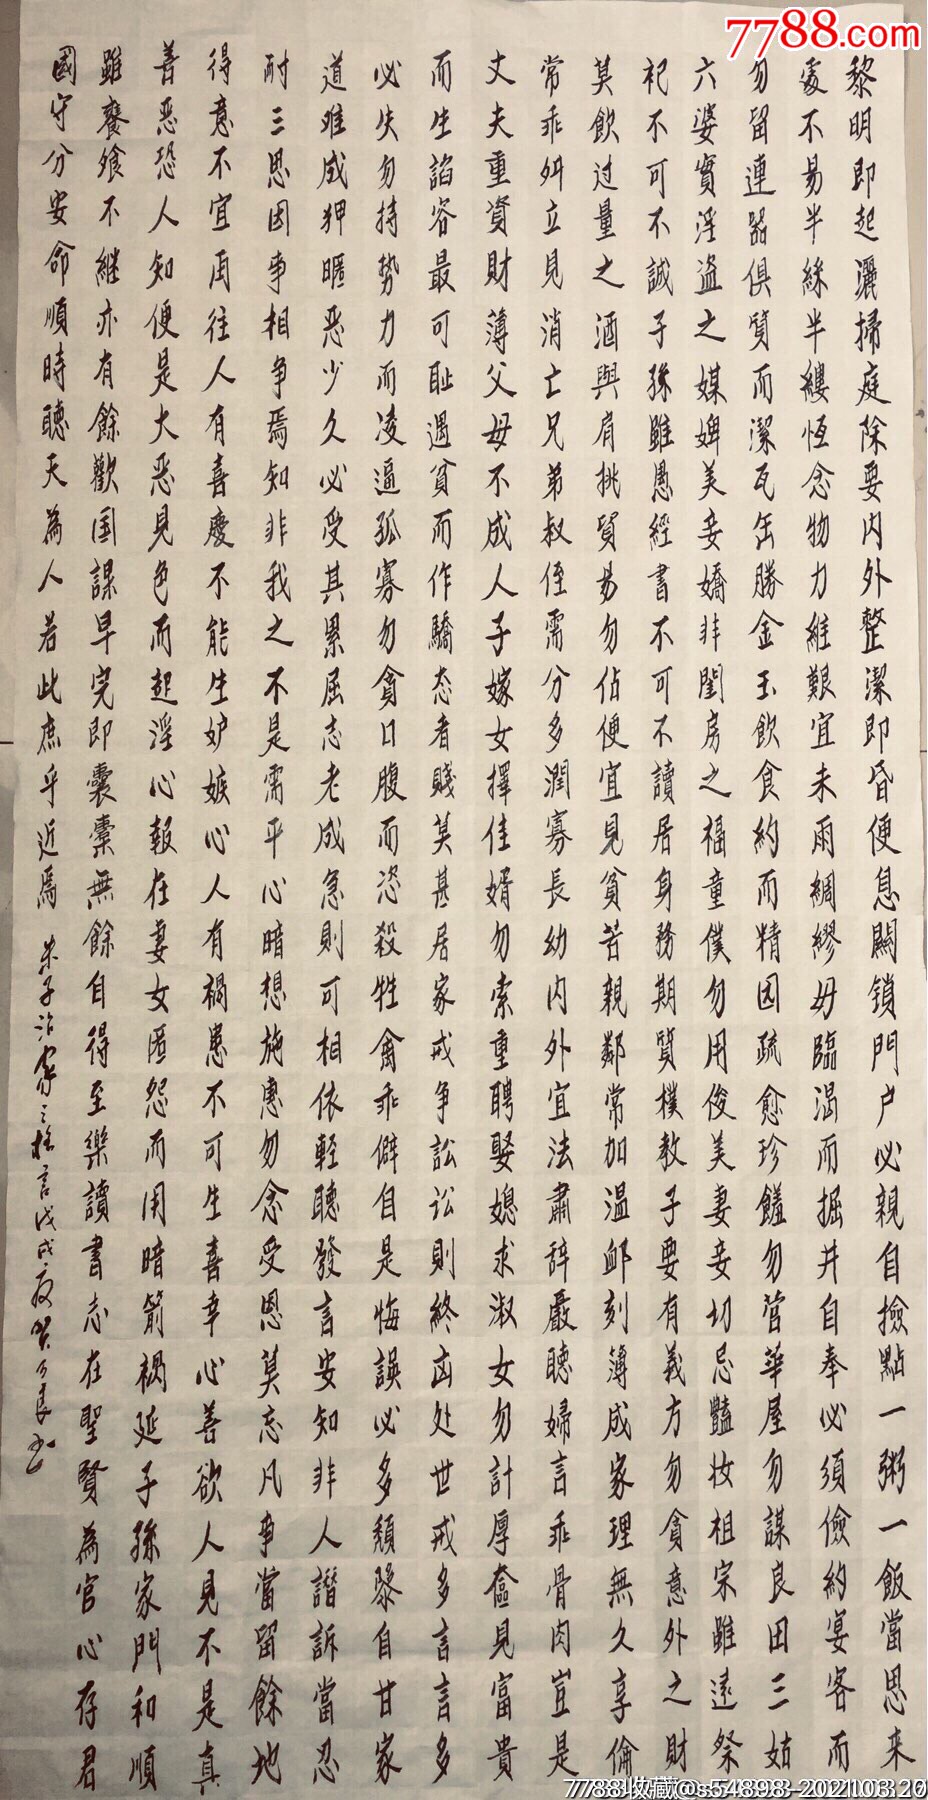 7788.com
黎明即起灑掃庭除要内外整潔即昏便息關鎖門户必親自撿點一粥一飯當思来
處不易半絲半縷恆念物力維艱宜未雨綢繆毋臨渴而掘井自奉必須儉約宴客而
勿留連器俱質而潔瓦缶勝金玉飲食約而精园疏愈珍饈勿营華屋勿謀良田三姑
六婆實淫盗之媒婢美妾嬌非閨房之福童僕勿用俊美妻妾切忌豔妆祖宗雖遠祭
祀不可不誠子孫雖愚經書不可不讀居身務期質樸教子要有義方勿貪意外之財
莫飲过量之酒與肩挑貿易勿佔便宜見貧苦親鄰常加温卹刻薄成家理無久享倫
常乖舛立見消亡兄弟叔侄需分多潤寡長幼内外宜法肅辞嚴聽婦言乖骨肉豈是
丈夫重資財薄父母不成人子嫁女擇佳婿勿索重聘娶媳求淑女勿計厚奩見富貴
而生諂容最可耻遇貧而作驕态者賤莫甚居家戒争訟讼則終凶处世戒多言言多
必失勿持势力而凌逼孤寡勿貪口腹而恣殺牲禽乖僻自是悔誤必多頹隳自甘家
道难成狎暱恶少久必受其累屈志老成急則可相依輕聽發言安知非人譖訴當忍
耐三思因事相争焉知非我之不是需平心暗想施惠勿念受恩莫忘凡事當留餘地
得意不宜再往人有喜慶不能生妒嫉心人有禍患不可生喜幸心善欲人見不是真
善恶恐人知便是大恶見色而起淫心報在妻女匿怨而用暗箭禍延子孫家門和順
雖饔飧不継亦有餘歡国課早完即囊橐無餘自得至樂讀書志在聖賢為官心存君
國守分安命順時聽天為人若此庶乎近焉
朱子治家之格言戊戌夜贺万良书
7788收藏@s54898-20210320